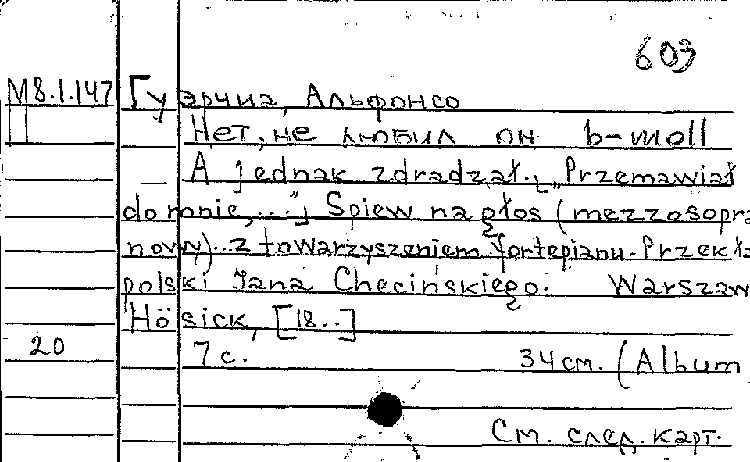 603
М8.1.147 Гуэрчиа, Альфонсо
П Нет, не любил он b-moll
A jednak zdradzał. [„Przemawiał
do mnie,..."] Spiew na głos (mezzosopra
nowy) z towarzyszeniem fortepianu. Przekła
polski Jana Chęcińskiego. Warszaw
Hösick, [18..]
20 7 с. 34 см. (Album
См. след. карт.